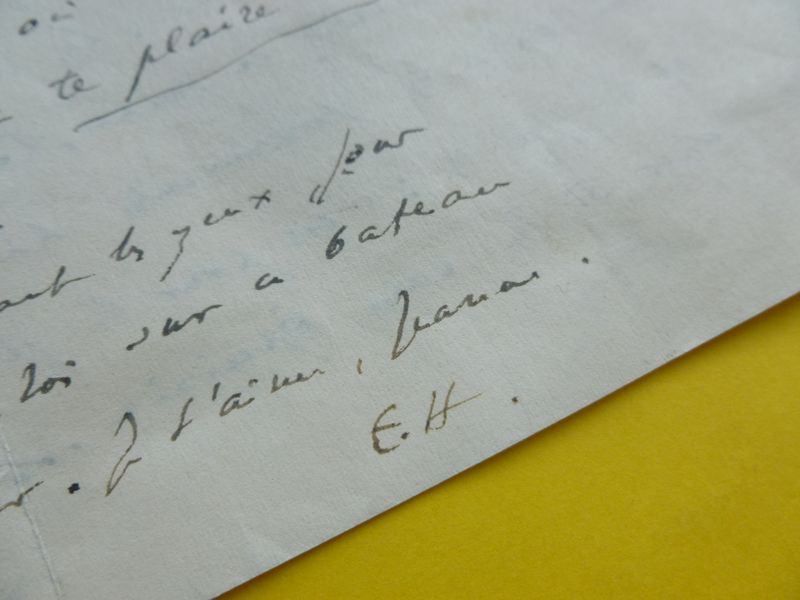 où
te plaire
les yeux pour
toi sur ce bateau
. Je t'aime, Jeanne.
E.H.